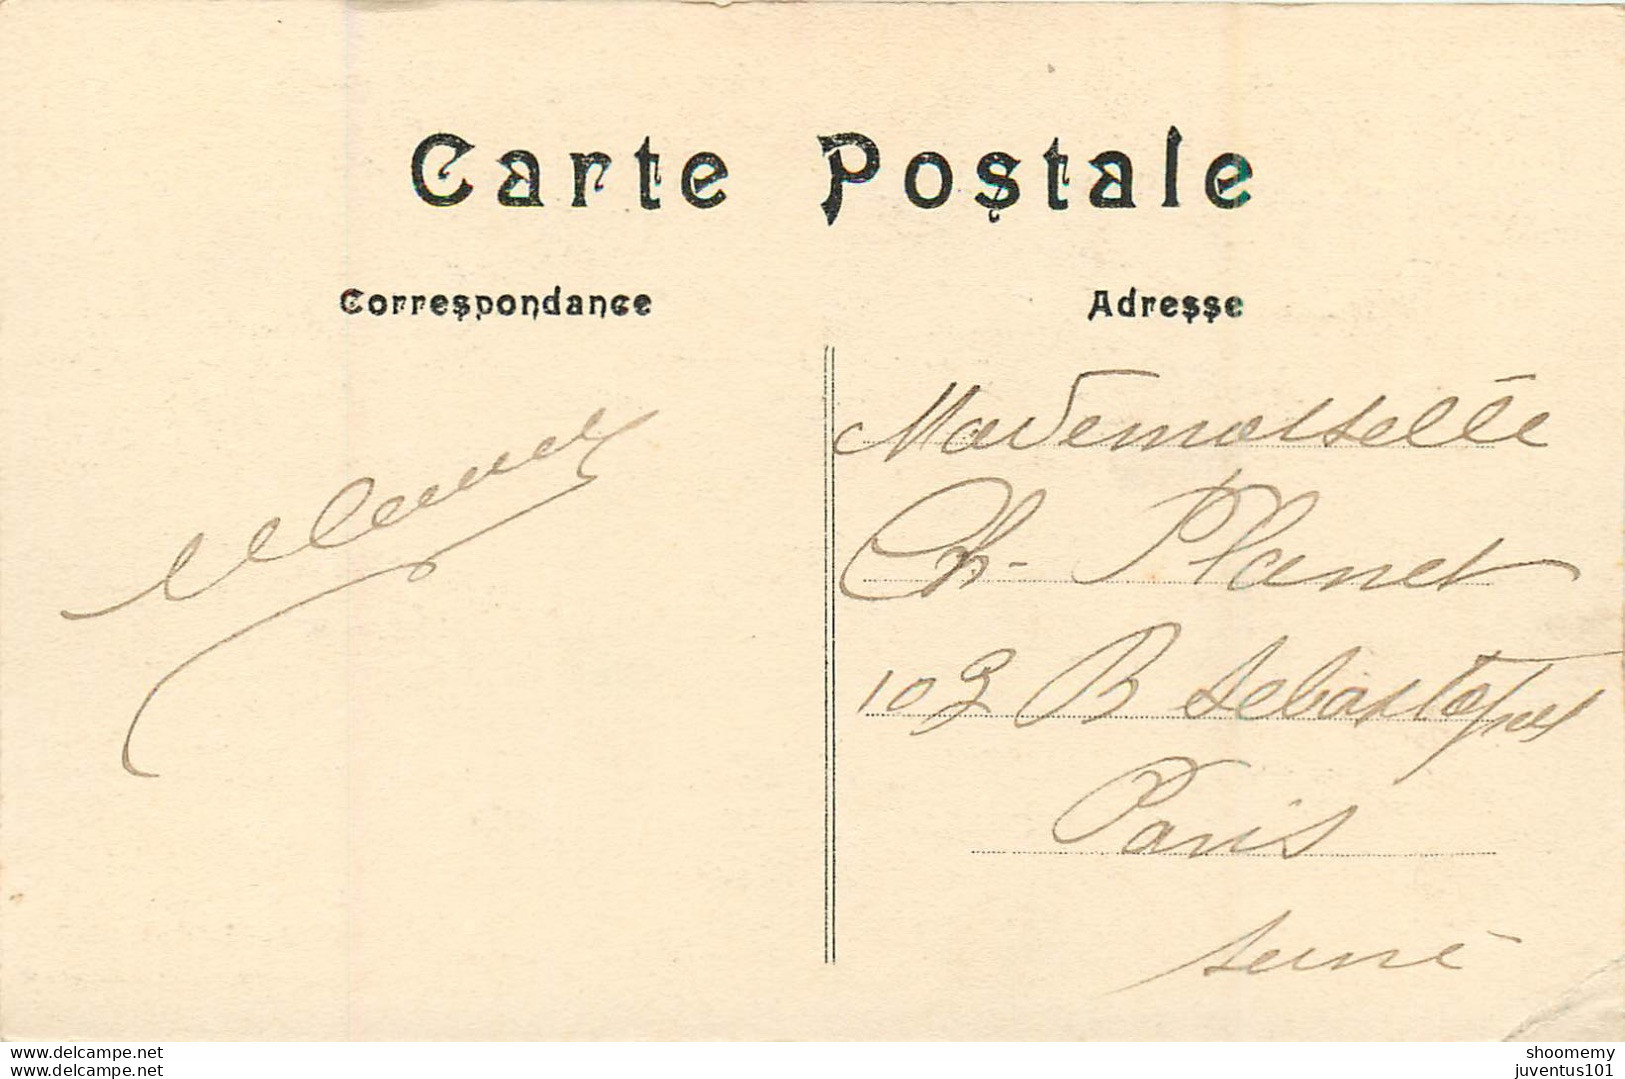 Carte Postale
Correspondance
Adresse
Mademoiselle
Ch. Planet
103 B Sebastopol
Paris
Seine
www.delcampe.net
www.delcampe.net
shoomemy
juventus101